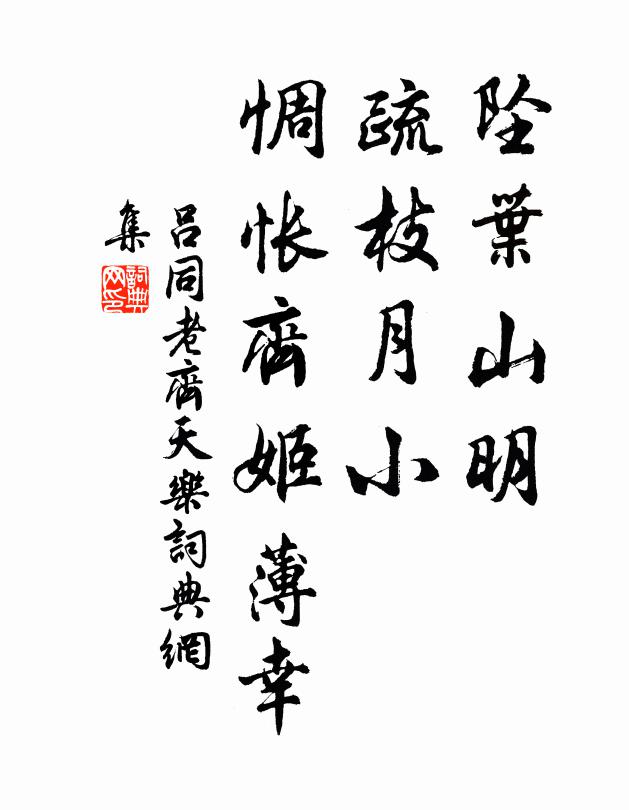 坠葉山明
疏枝月小
惆怅齊姬薄幸
吕同老齊天樂詞典網
集
詞典網印